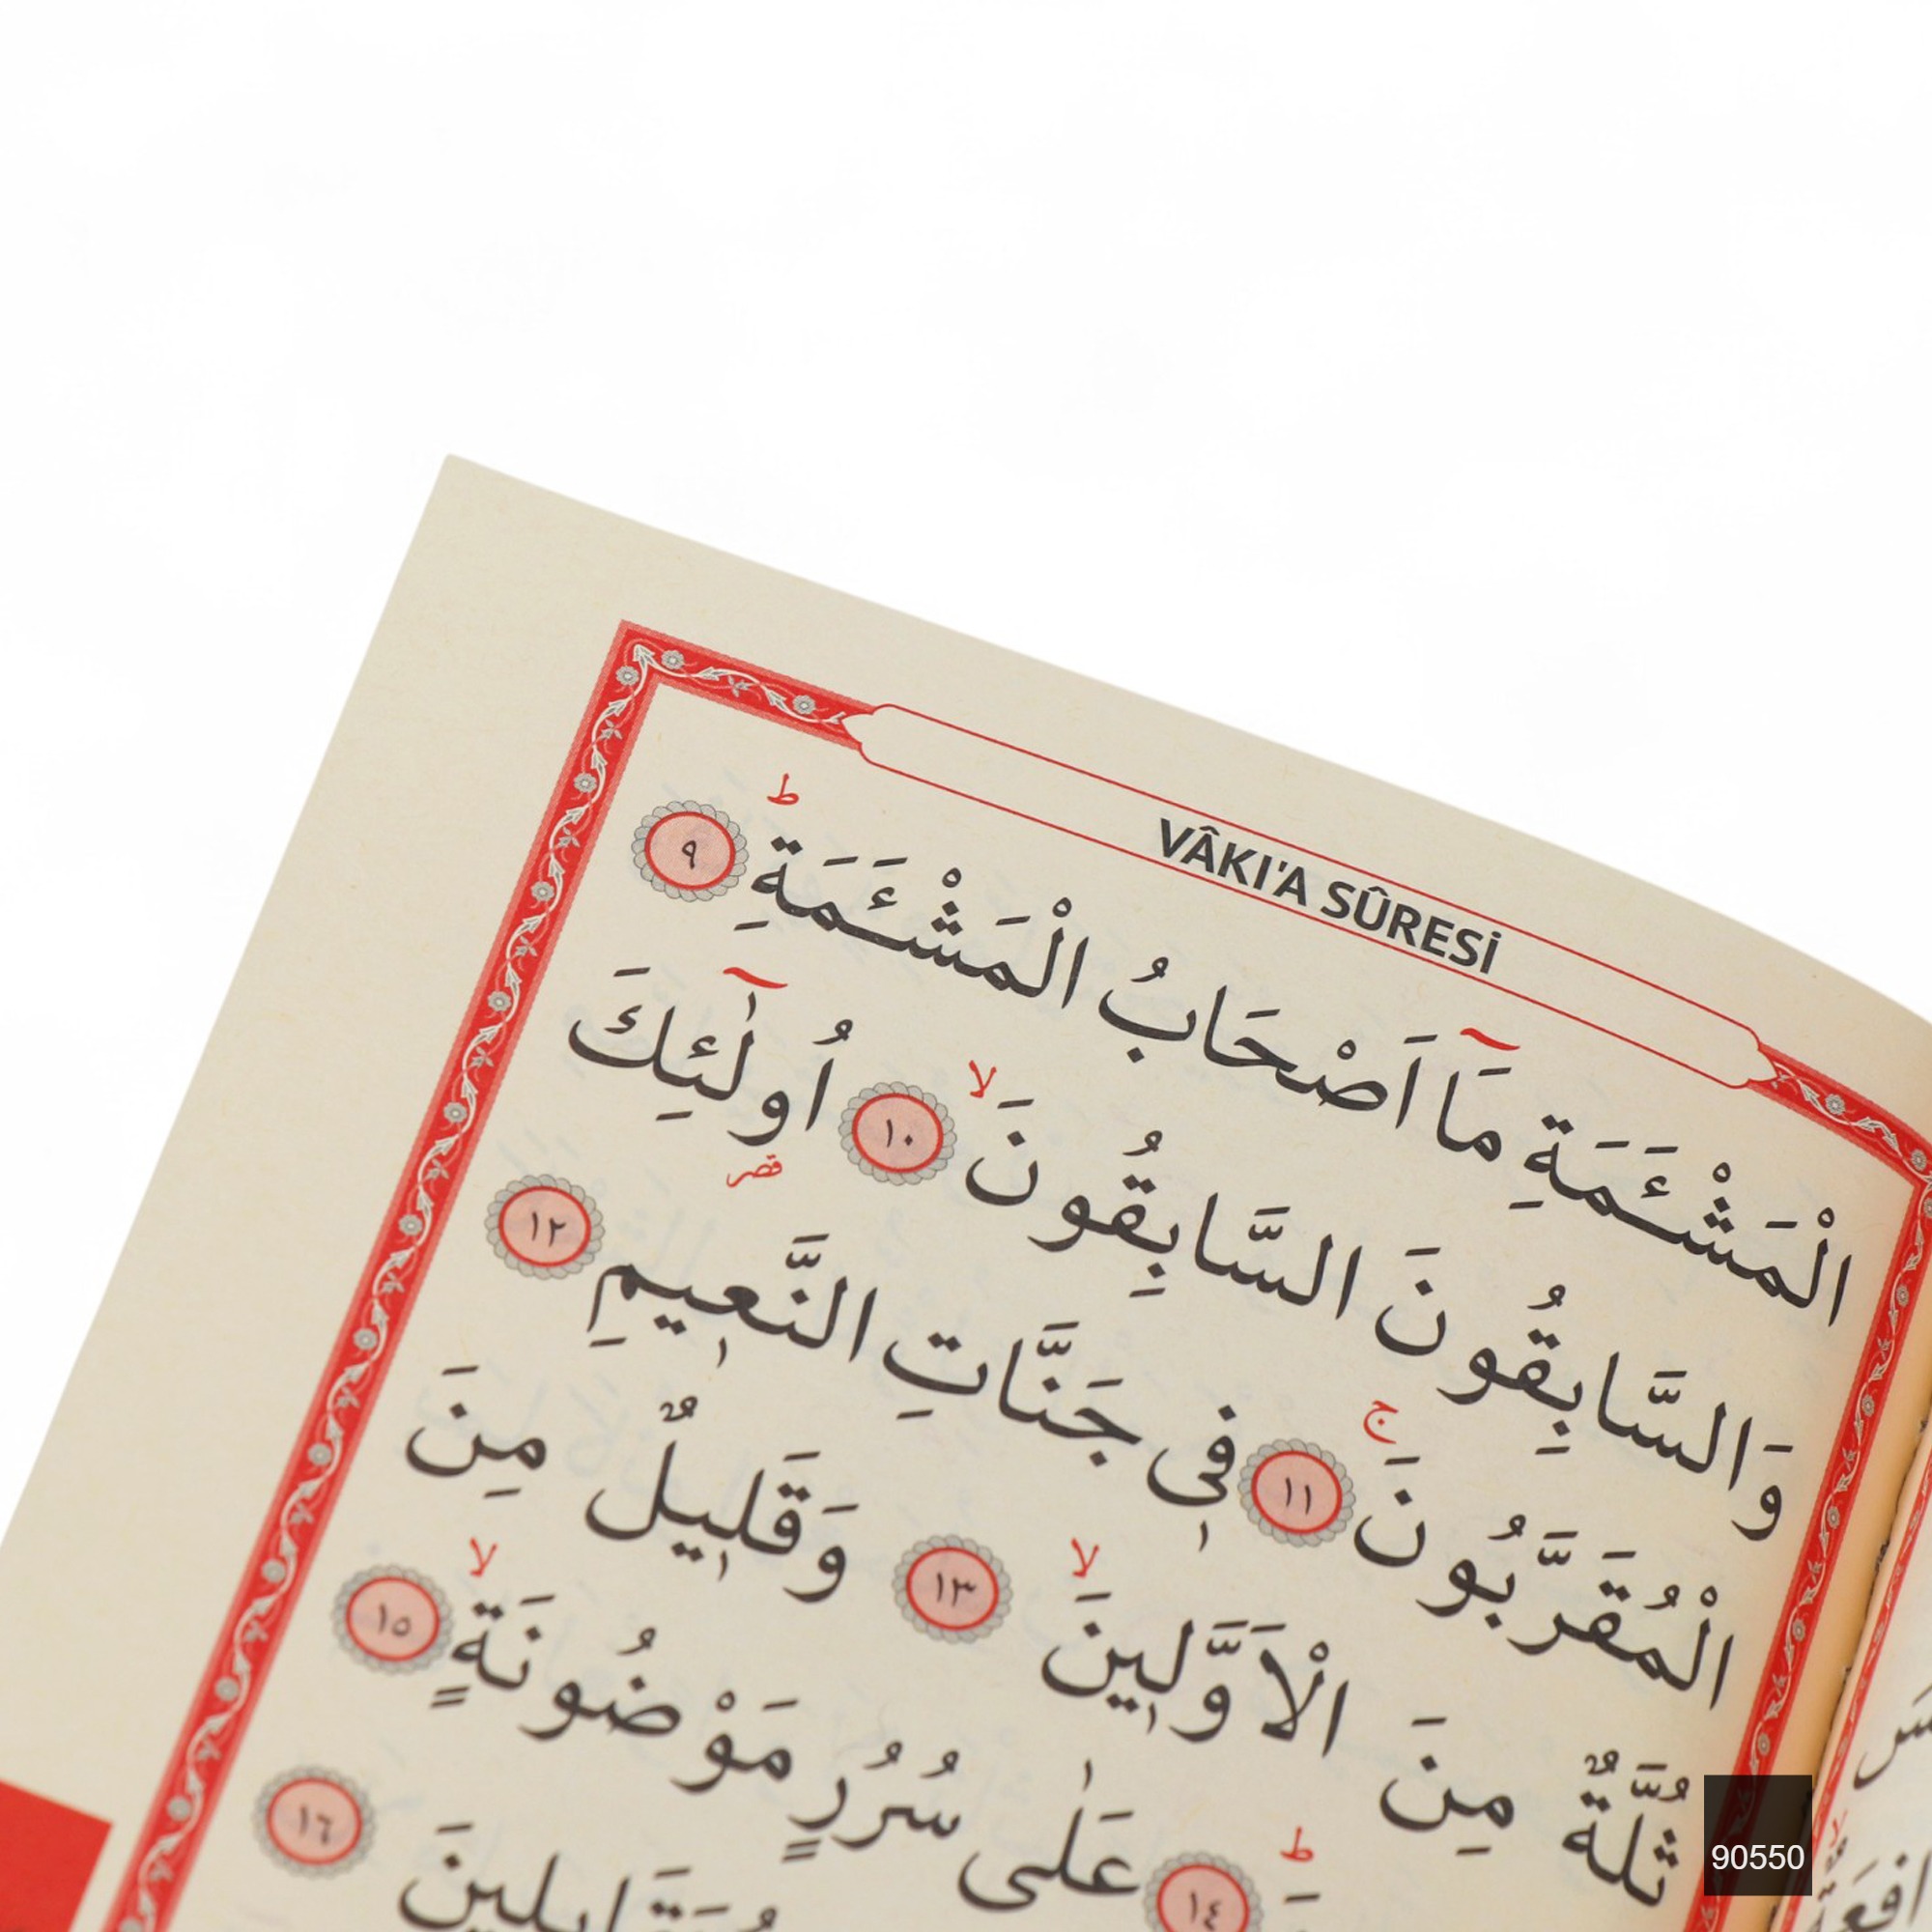 VÂKI'A SÛRESİ
الْمَشْـَٔمَةِ مَٓا اَصْحَابُ الْمَشْـَٔمَةِ ط ٩
وَالسَّابِقُونَ السَّابِقُونَ لا ١٠ اُولٰٓئِكَ قصر
الْمُقَرَّبُونَ ج ١١ فٖى جَنَّاتِ النَّعٖيمِ ١٢
ثُلَّةٌ مِنَ الْاَوَّلٖينَ لا ١٣ وَقَلٖيلٌ مِنَ
ط ١٤ عَلٰى سُرُرٍ مَوْضُونَةٍ لا ١٥
١٦
90550